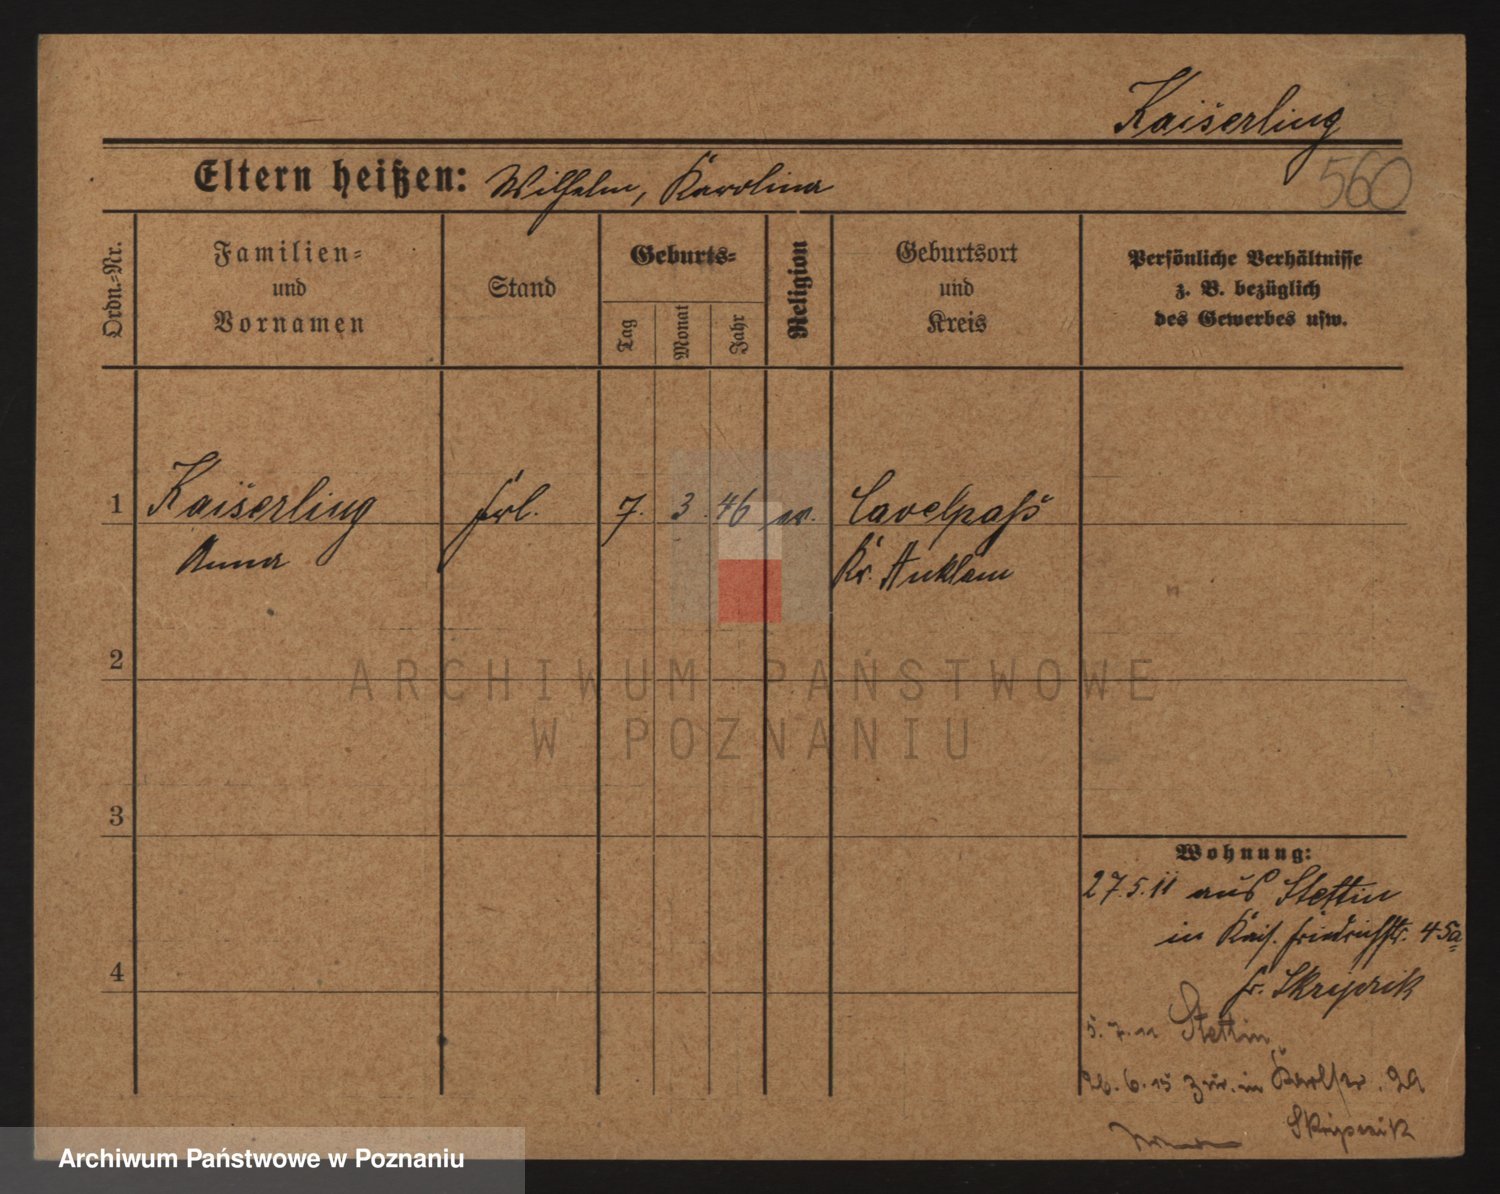 Kaiserling
560
Eltern heißen: Wilhelm, Karolina
Ordn.-Nr.
Familien-
und
Vornamen
Stand
Geburts-
Tag
Monat
Jahr
Religion
Geburtsort
und
Kreis
Persönliche Verhältnisse
z. B. bezüglich
des Gewerbes usw.
1
Kaiserling
Anna
Frl.
7.
3.
46
ev.
Cavelpaß
Kr. Anklam
2
ARCHIWUM PAŃSTWOWE
W POZNANIU
3
4
Wohnung:
27.5.11 aus Stettin
in Kais. Friedrichstr. 45a
fr. Skripzik
5.7.11 Stettin
26.6.15 zur. in
Archiwum Państwowe w Poznaniu